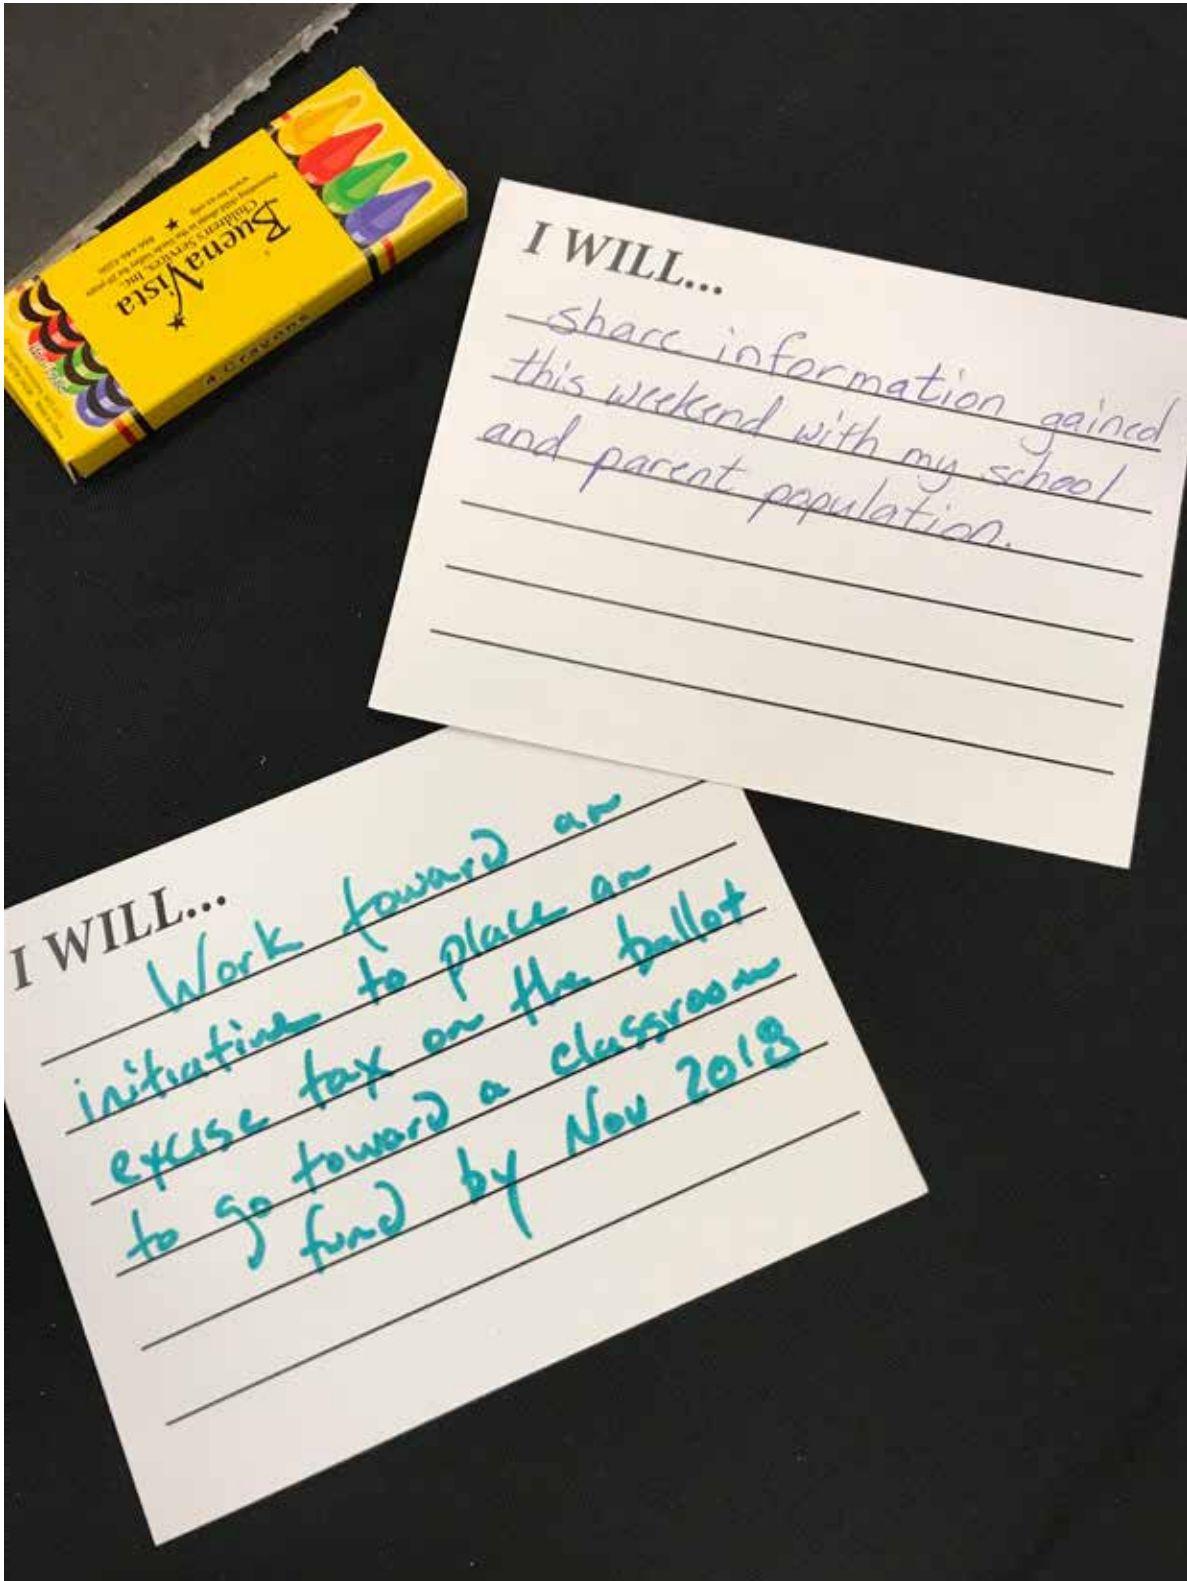 Buena Vista
Children's Services, Inc.
4 Crayons
I WILL...
share information gained
this weekend with my school
and parent population.
I WILL...
Work toward an
initiative to place an
excise tax on the ballot
to go toward a classroom
fund by Nov 2018